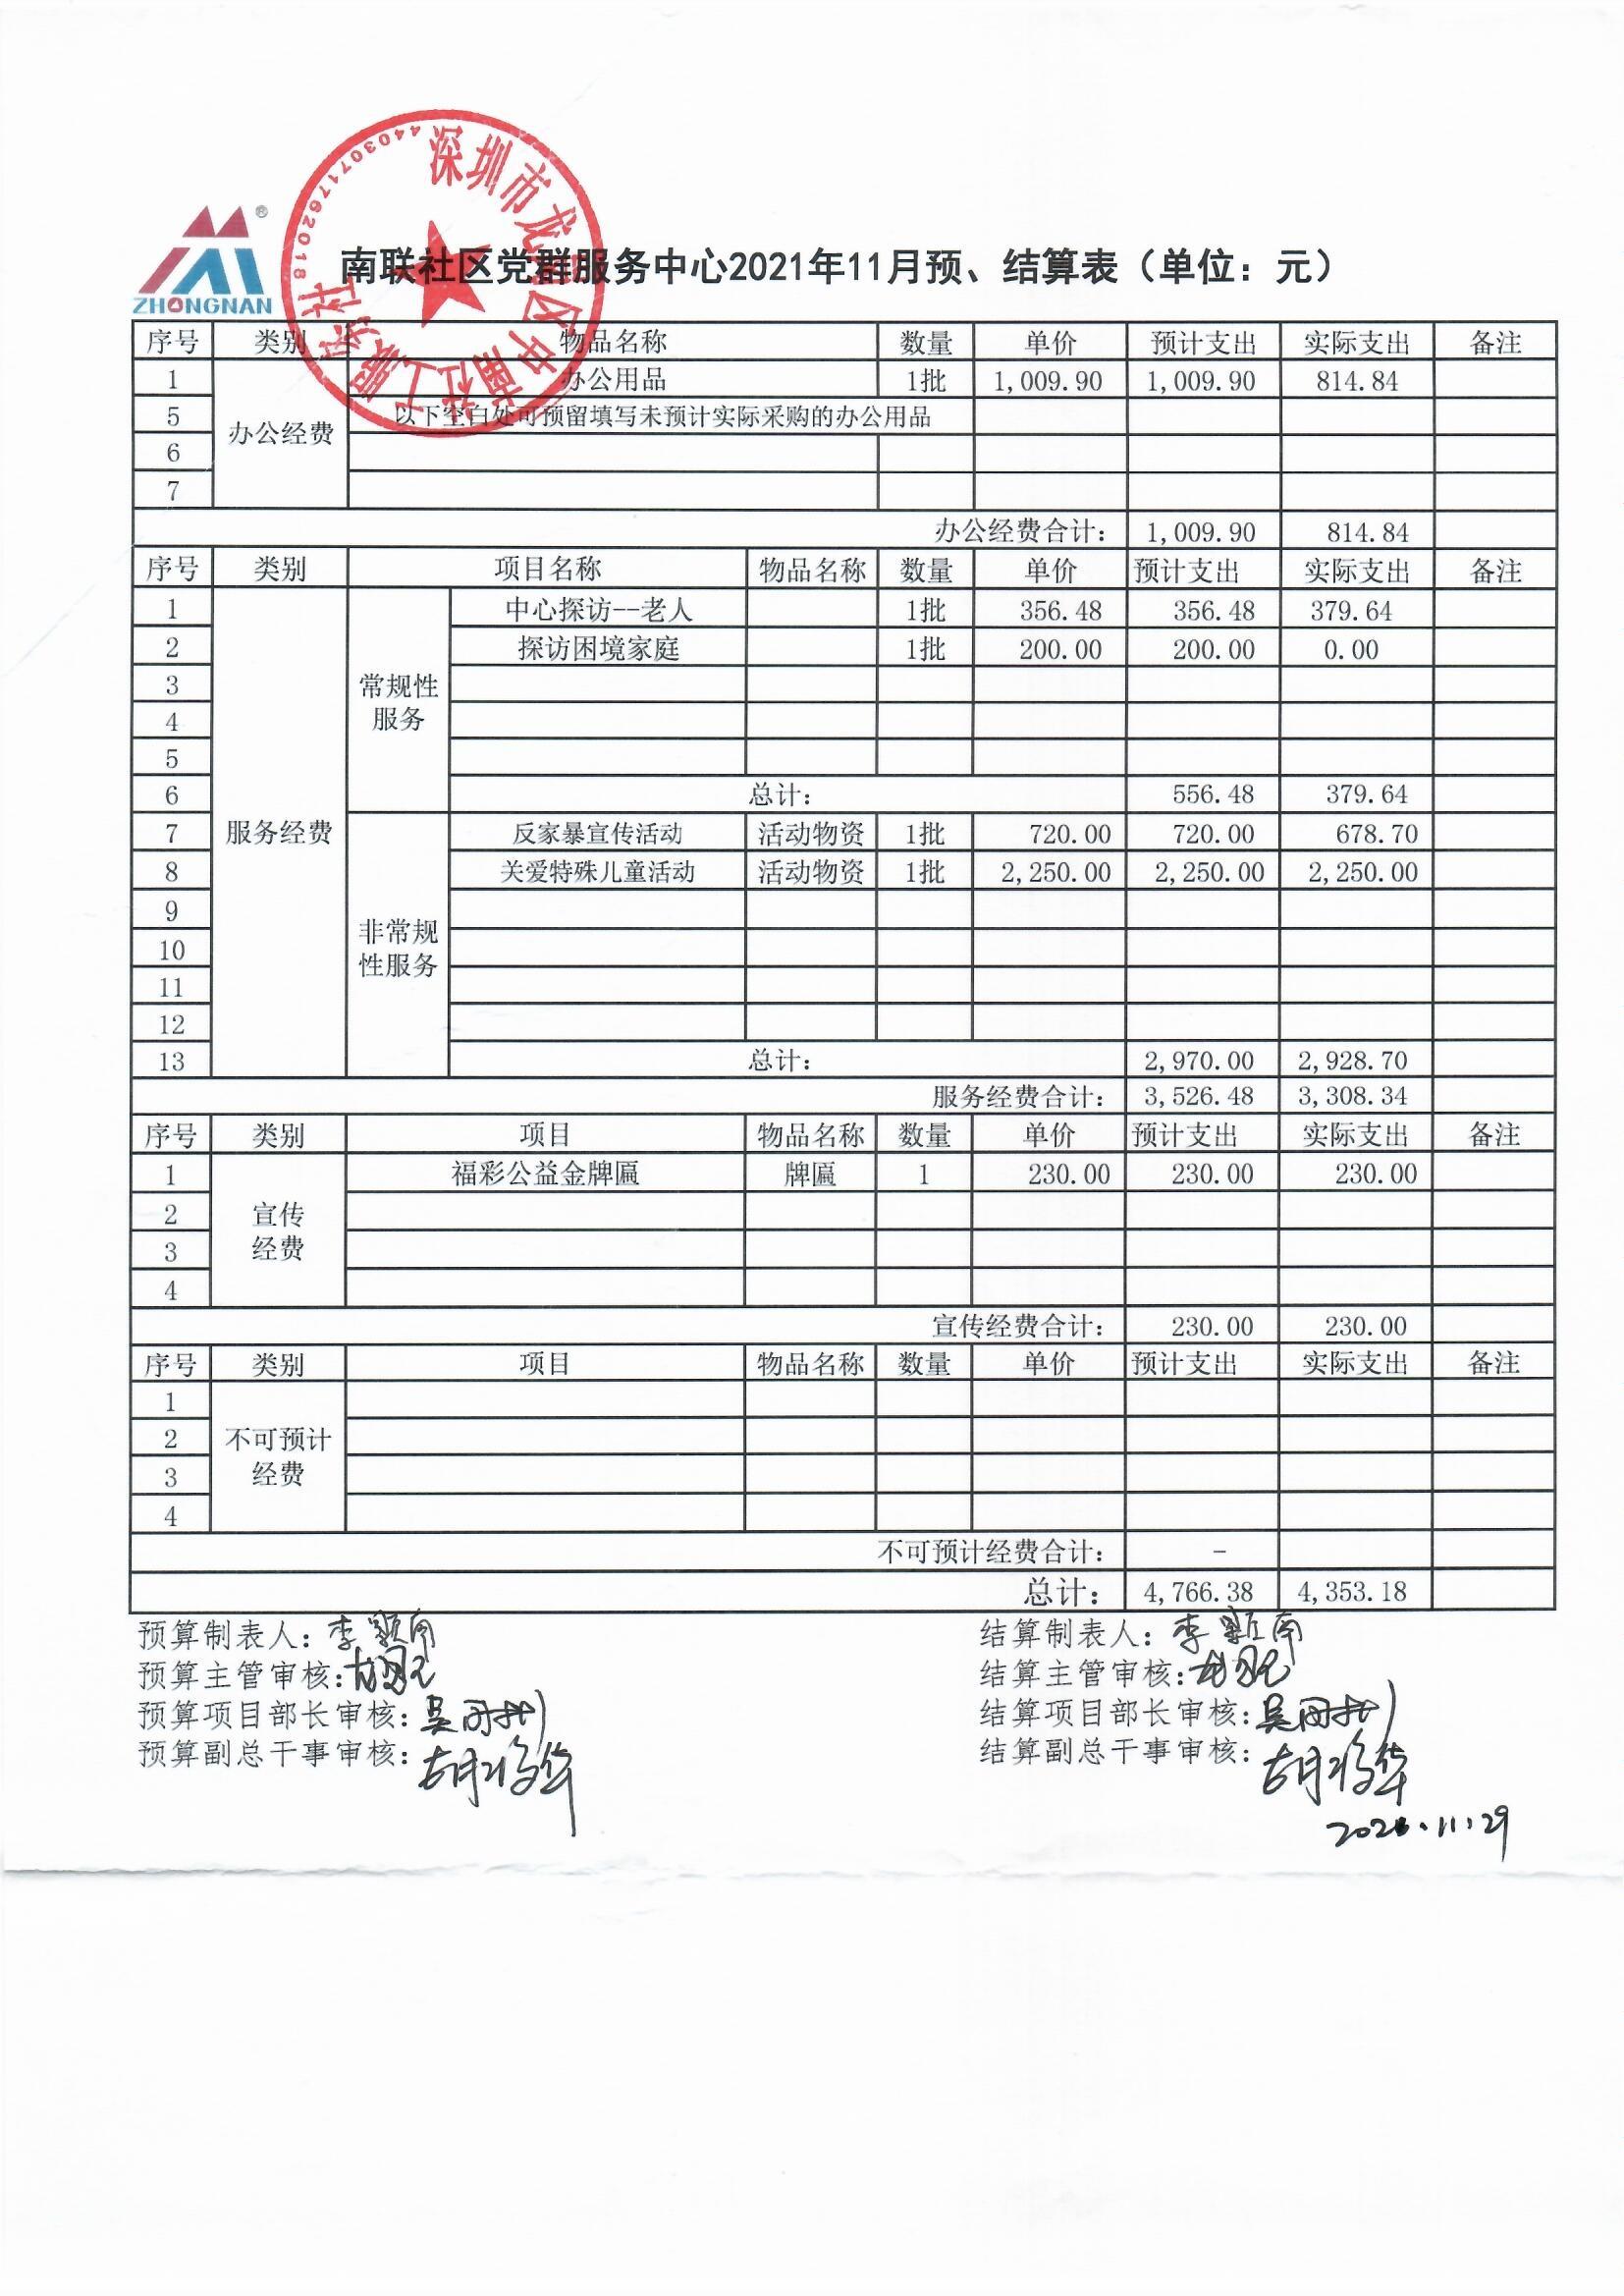 深圳市龙岗区中南社工服务社
4403071762018
ZHONGNAN
南联社区党群服务中心2021年11月预、结算表（单位：元）
序号 类别 物品名称 数量 单价 预计支出 实际支出 备注
1 办公用品 1批 1,009.90 1,009.90 814.84
5 以下空白处可预留填写未预计实际采购的办公用品
办公经费
6
7
办公经费合计： 1,009.90 814.84
序号 类别 项目名称 物品名称 数量 单价 预计支出 实际支出 备注
1 中心探访--老人 1批 356.48 356.48 379.64
2 探访困境家庭 1批 200.00 200.00 0.00
3 常规性
4 服务
5
6 总计： 556.48 379.64
7 服务经费 反家暴宣传活动 活动物资 1批 720.00 720.00 678.70
8 关爱特殊儿童活动 活动物资 1批 2,250.00 2,250.00 2,250.00
9
非常规
10 性服务
11
12
13 总计： 2,970.00 2,928.70
服务经费合计： 3,526.48 3,308.34
序号 类别 项目 物品名称 数量 单价 预计支出 实际支出 备注
1 福彩公益金牌匾 牌匾 1 230.00 230.00 230.00
2 宣传
3 经费
4
宣传经费合计： 230.00 230.00
序号 类别 项目 物品名称 数量 单价 预计支出 实际支出 备注
1
2 不可预计
3 经费
4
不可预计经费合计： -
总计： 4,766.38 4,353.18
预算制表人：李颖南 结算制表人：李颖南
预算主管审核： 结算主管审核：
预算项目部长审核： 结算项目部长审核：
预算副总干事审核： 结算副总干事审核：
11.29